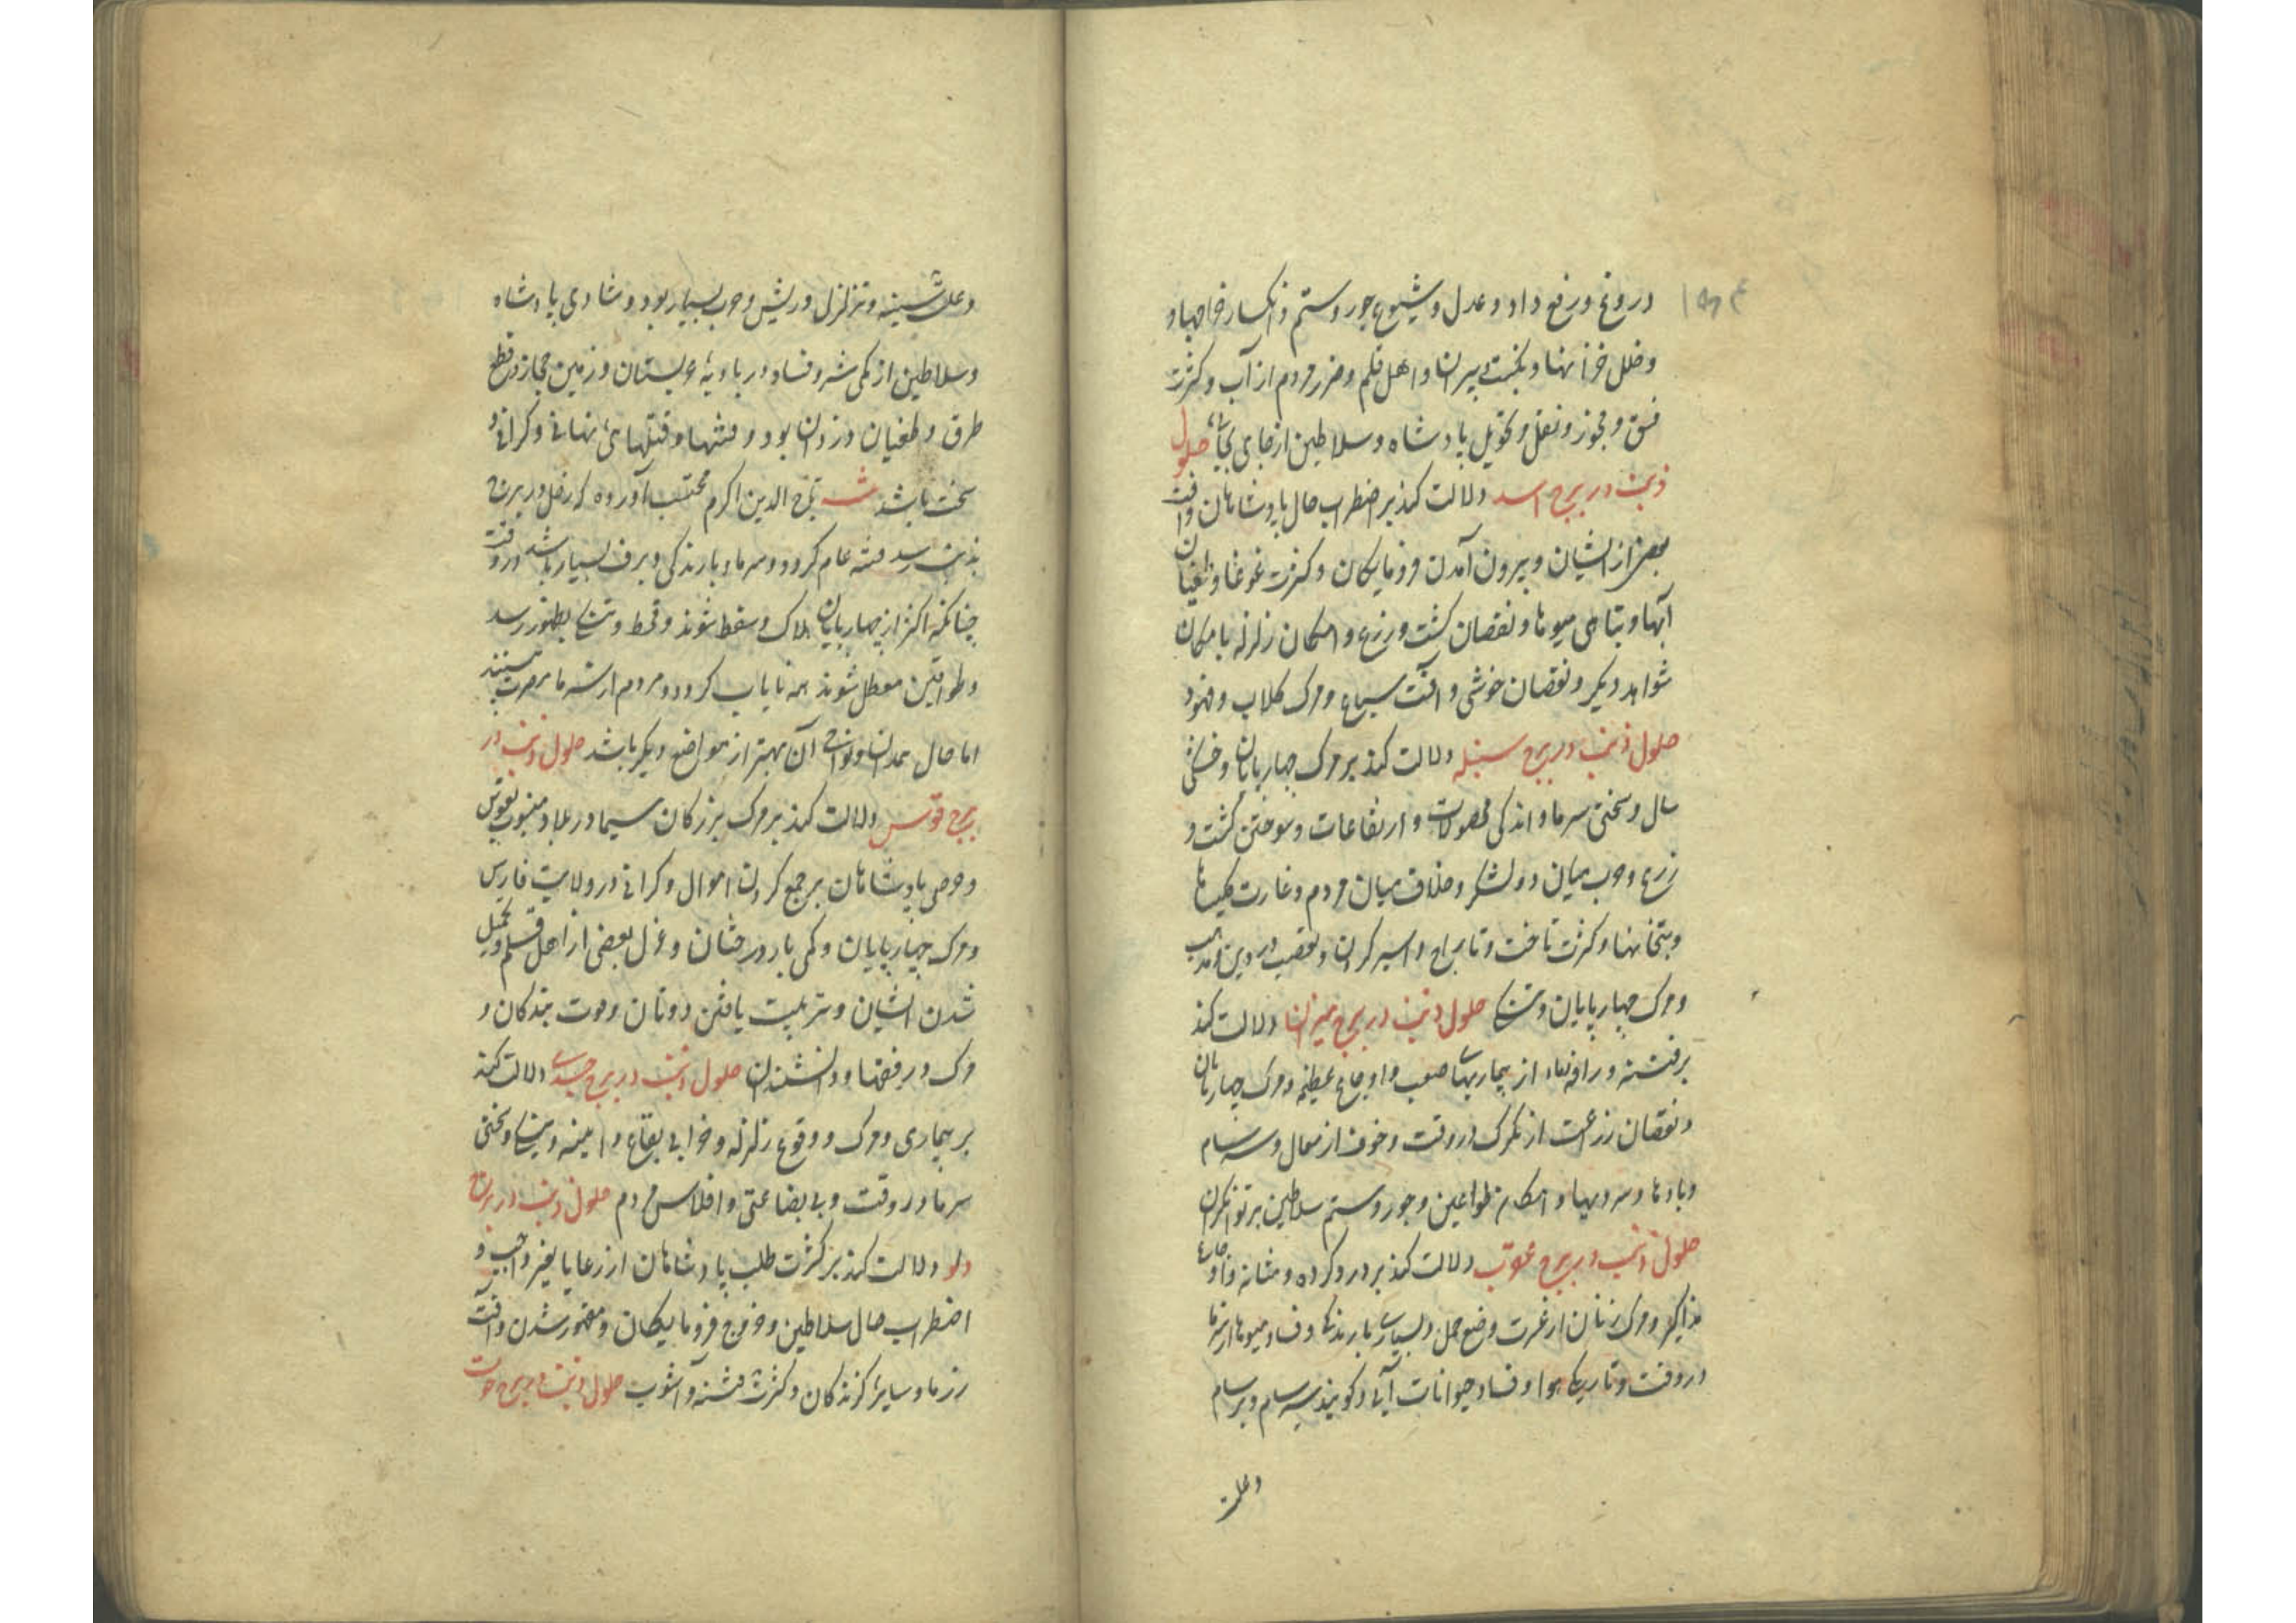 دروغ و رفع داد و عدل و شیوع جور و ستم و انکسار خراجها و
و خلل خزانها و نکبت دبیران و اهل قلم و ضرر مردم از آب و کثرت
فسق و فجور و نقل و تحویل پادشاه و سلاطین از جای بجای حلول
ذنب در برج اسد دلالت کند بر اضطراب حال پادشاهان و آفت
بعضی از ایشان و بیرون آمدن فرومایکان و کثرت غوغا و طغیان
آبها و تباهی میوها و نقصان کشت و زرع و امکان زلزله با مکان
شواهد دیکر و نقصان خوشی و آفت سباع و مرک کلاب و فهود
حلول ذنب در برج سنبله دلالت کند بر مرک چهارپایان و خشکی
سال و سختی سرما و اندکی محصولات و ارتفاعات و سوختن کشت و
زرع و حرب میان دو لشکر و خلاف میان مردم و غارت کلیساها
و بتخانها و کثرت تاخت و تاراج و اسیر کردن و تعصب در دین و مذهب
و مرک چهارپایان و تنکی حلول ذنب در برج میزان دلالت کند
بر فتنه و از بیماریهای صعب و اوجاع عظیم و مرک چهارپایان
و نقصان زراعت از تکرک در وقت و خوف از سعال و سرسام
و بادها و سردیها و احکام طواعین و جور و ستم سلاطین بر توانکران
حلول ذنب در برج عقرب دلالت کند بر درد کرده و مثانه و اوجاع
مذاکیر و مرک زنان از عسرت وضع حمل و بسیاری بارندکی و فساد میوها از سرما
در وقت و تاریکی هوا و فساد حیوانات آبی و کویند سرسام و برسام
و علت
و علت سینه و تزلزل و ریش و جرب بسیار بود و شادی پادشاه
و سلاطین از کمی شر و فساد در بادیه عربستان و زمین حجاز و قطع
طرق و طغیان دزدان بود و فتنها و قتلهای نهانی و کرانی
سخت باشد تاج الدین اکرم محتسب آورده که زحل در برج
ذنب رسد فتنه عام کردد و سرما و بارندکی و برف بسیار باشد در وقت
چنانکه اکثر از چهارپایان هلاک و سقط شوند و قحط و تنکی بظهور رسد
و طواحین معطل شوند همه نایاب کردد و مردم از سرما
اما حال همدان و نواحی آن بهتر از مواضع دیکر باشد حلول ذنب در
برج قوس دلالت کند بر مرک بزرکان سیما در بلاد منسوب بقوس
و حرص پادشاهان بر جمع کردن اموال و کرانی در ولایت فارس
و مرک چهارپایان و کمی بار درختان و عزل بعضی از اهل قلم و
شدن ایشان و تربیت یافتن دونان و موت بندکان و
مرک و فقها و دانشمندان حلول ذنب در برج جدی دلالت کند
بر بیماری و مرک و وقوع زلزله و خرابی بقاع و ابنیه و تنکی و سختی
سرما در وقت و بی بضاعتی و افلاس مردم حلول ذنب در برج
دلو دلالت کند بر کثرت طلب پادشاهان از رعایا بغیر واجب و
اضطراب حال سلاطین و خروج فرومایکان و مقهور شدن و آفت
رزها و سایر کزندکان و کثرت فتنه و آشوب حلول ذنب در برج حوت